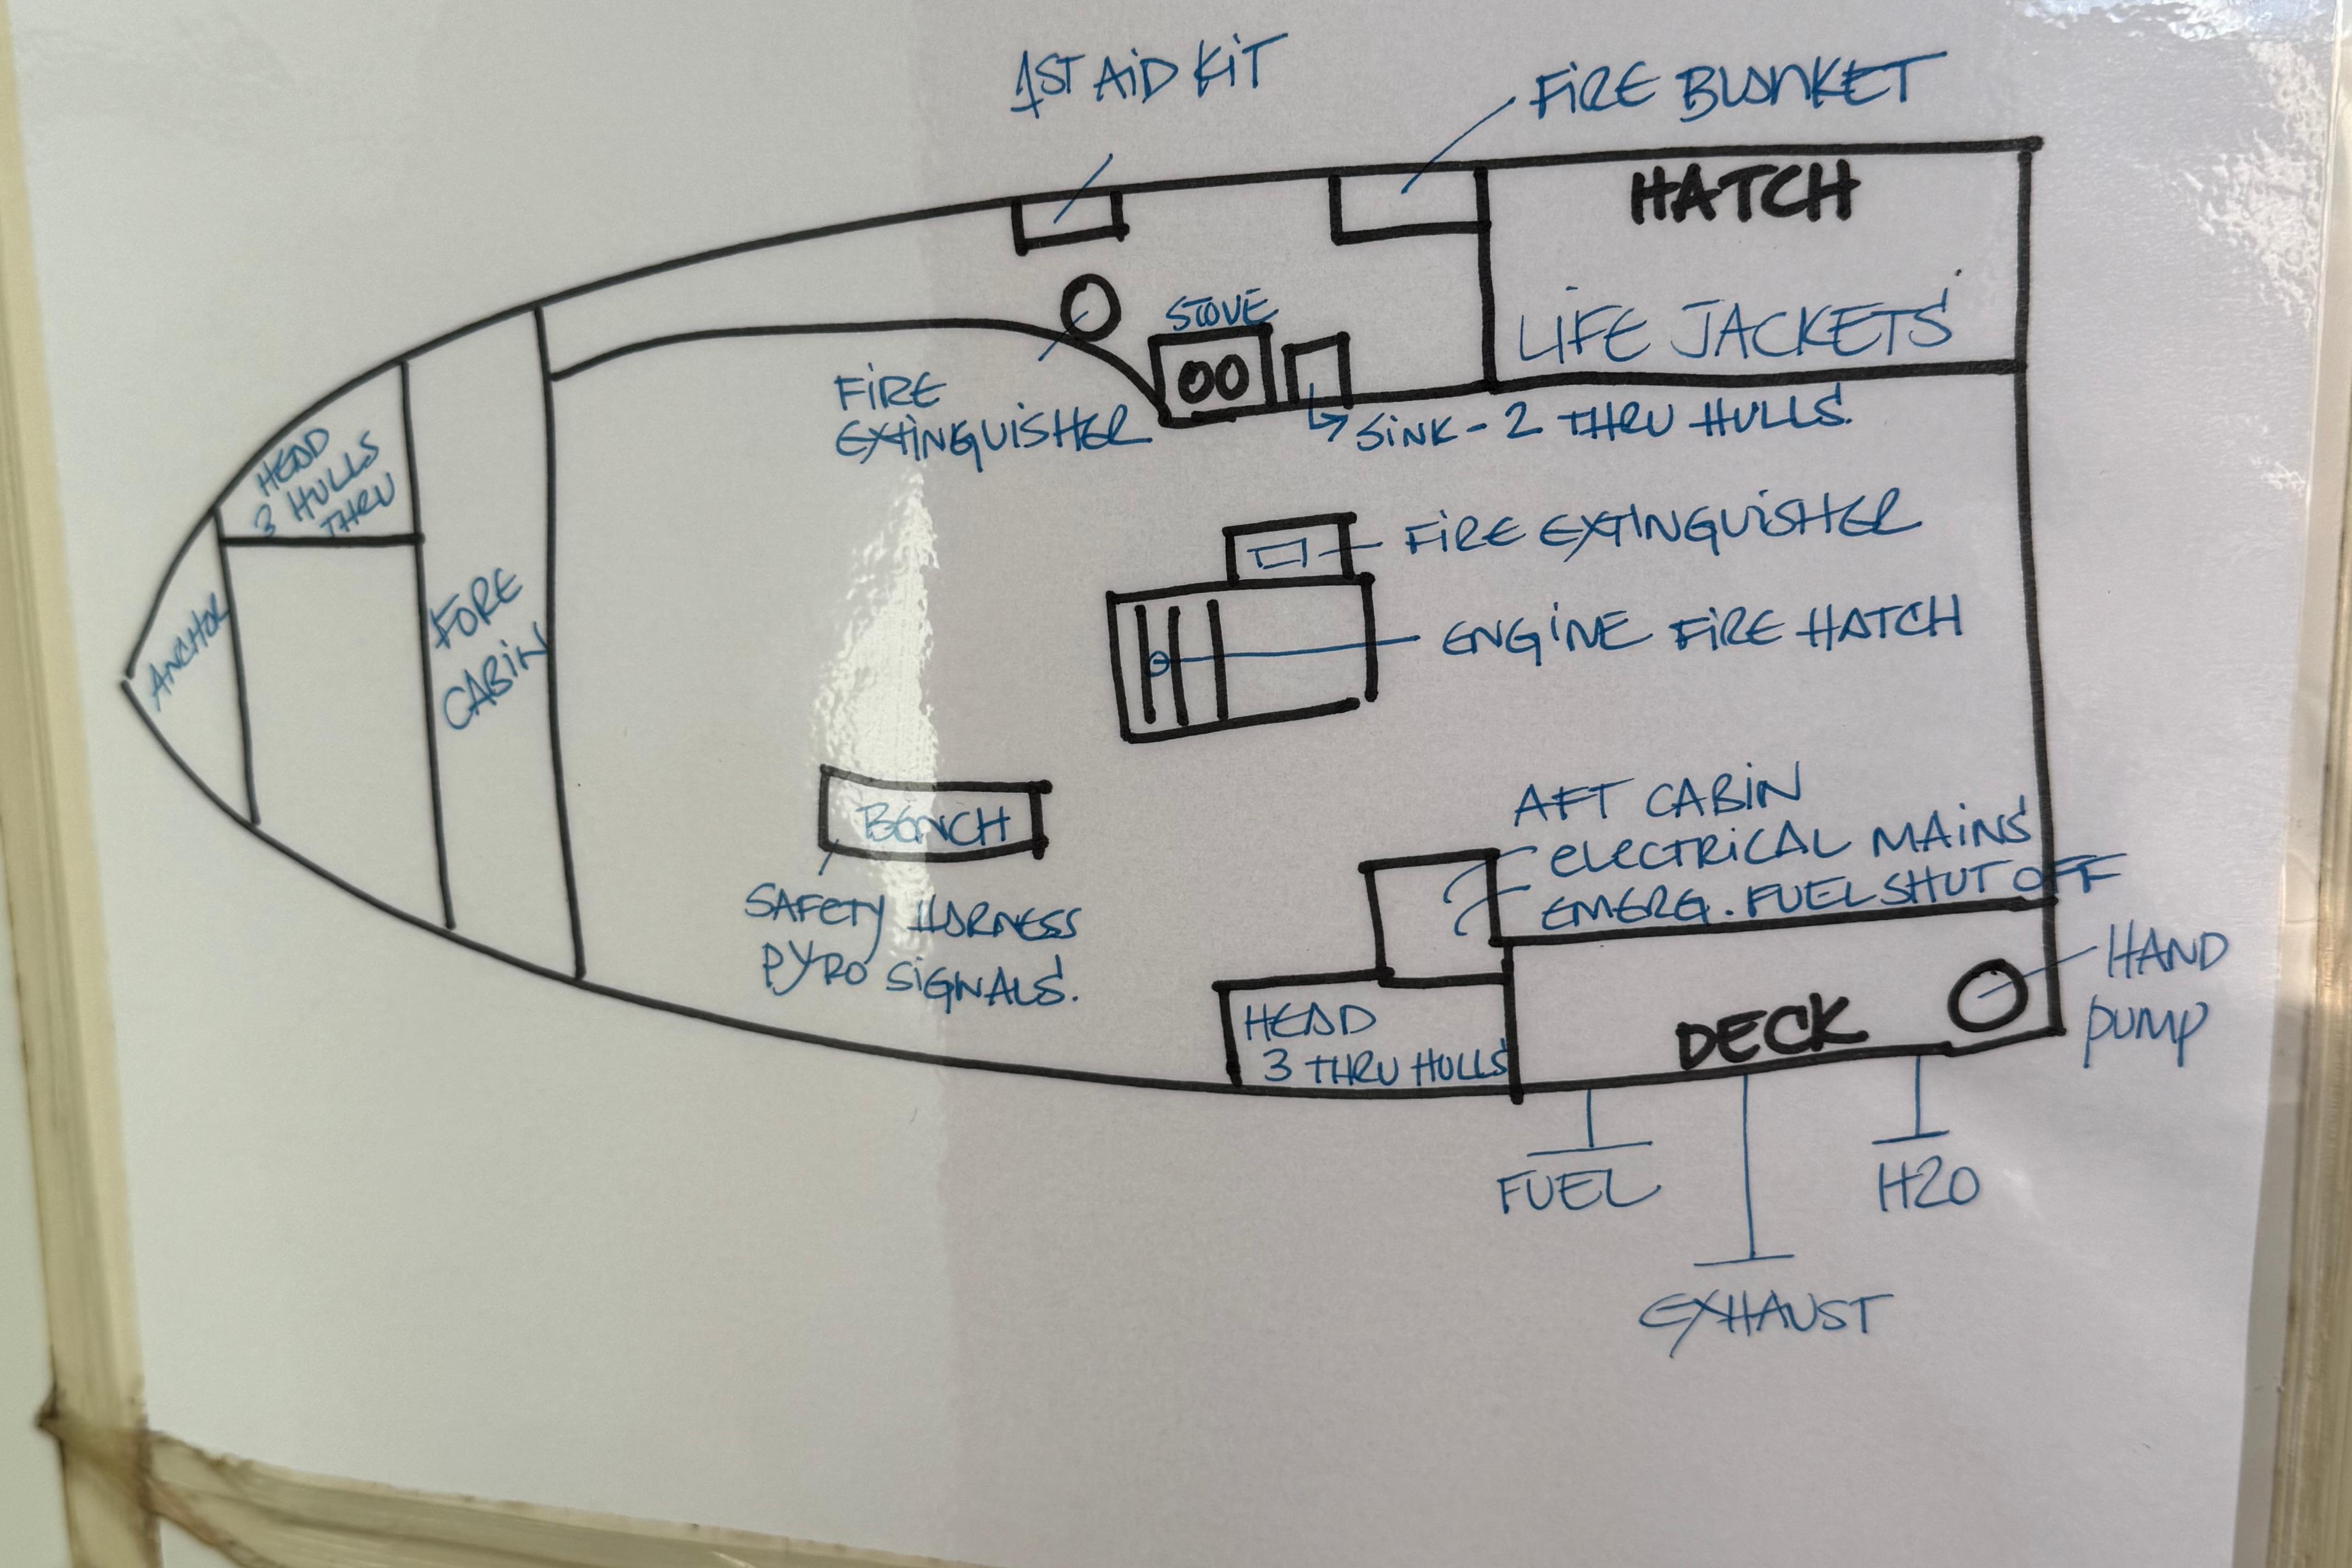 1ST AID KIT
FIRE BLANKET
HATCH
LIFE JACKETS
STOVE
FIRE
EXTINGUISHER
SINK - 2 THRU HULLS.
HEAD
3 HULLS
THRU
ANCHOR
FORE
CABIN
FIRE EXTINGUISHER
ENGINE FIRE HATCH
BENCH
SAFETY HARNESS
PYRO SIGNALS.
AFT CABIN
ELECTRICAL MAINS
EMERG. FUEL SHUT OFF
HAND
PUMP
DECK
HEAD
3 THRU HULLS
FUEL
H2O
EXHAUST